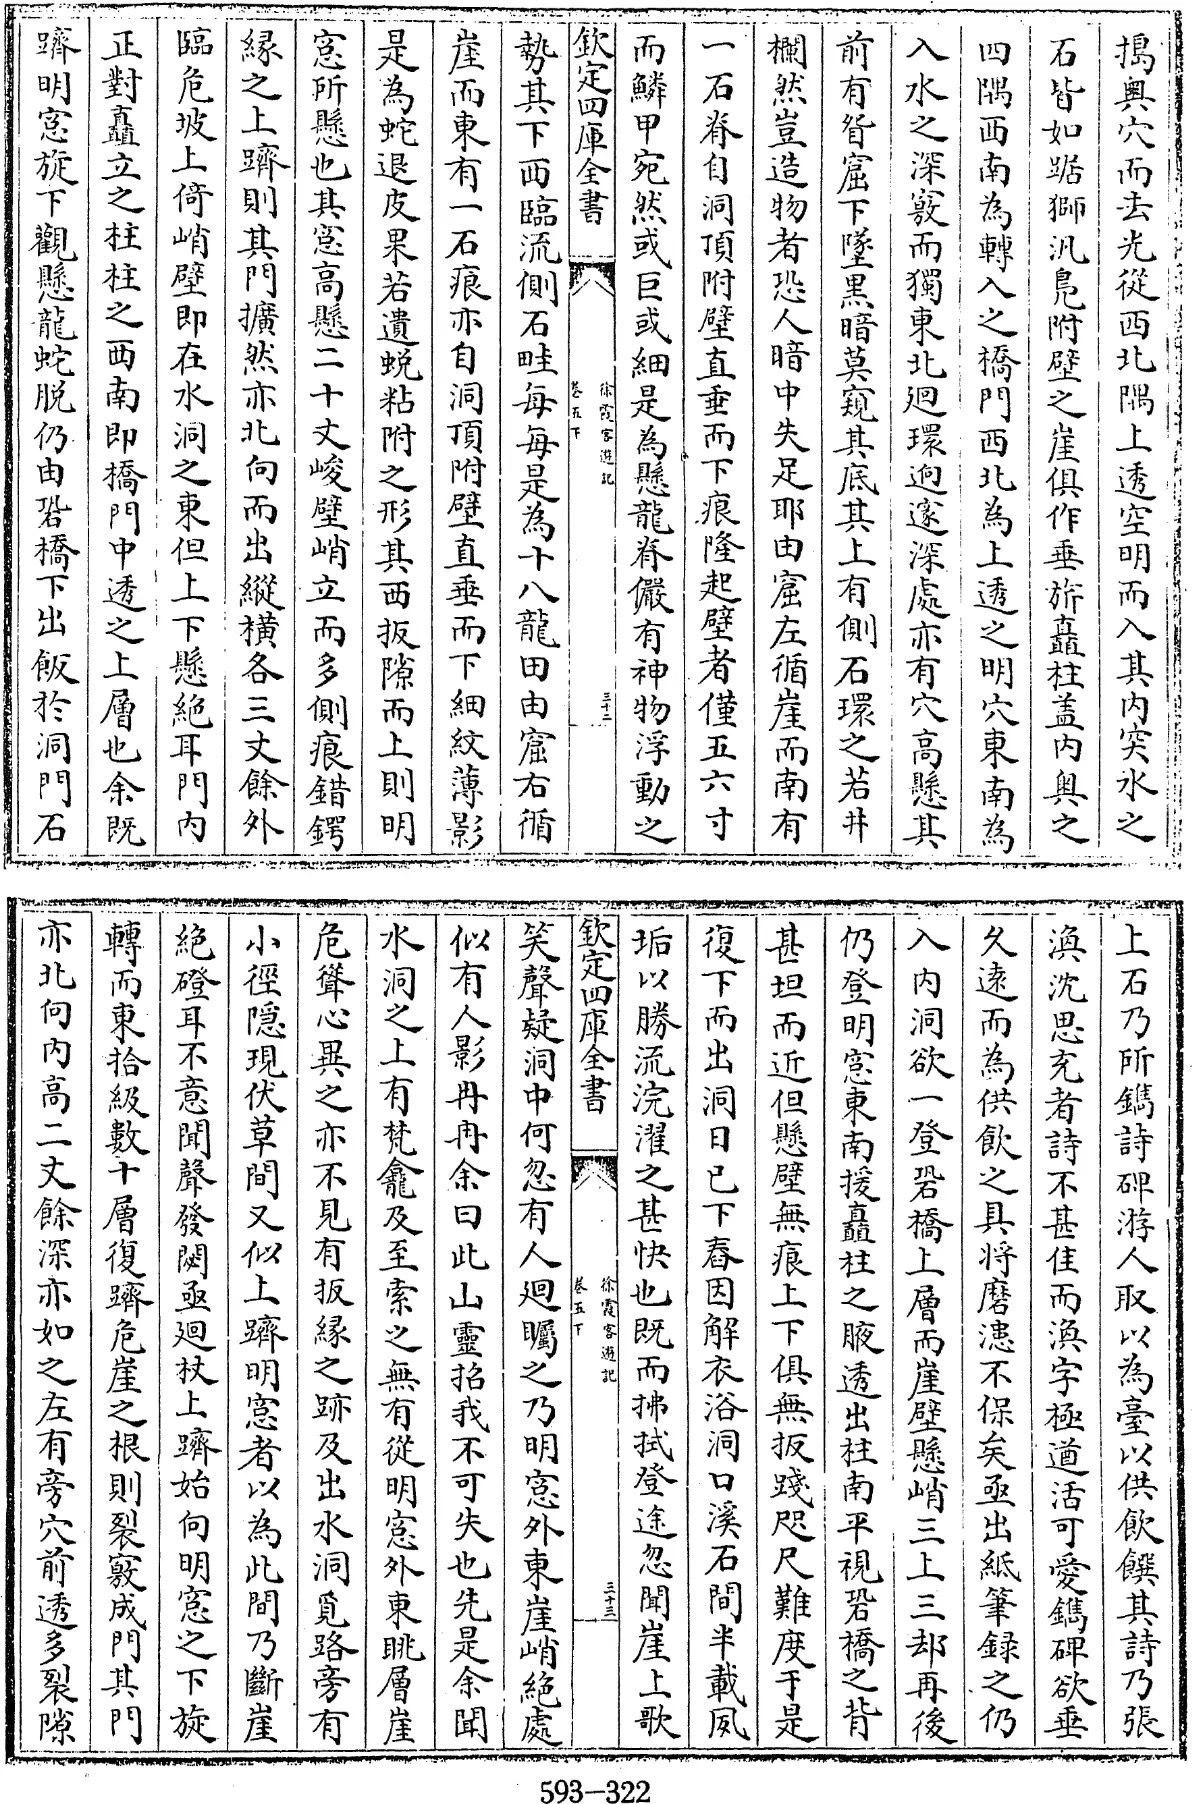 搗奧穴而去光從西北隅上透空明而入其内突水之
石皆如踞獅汎鳧附壁之崖俱作垂旂矗柱盖内奥之
四隅西南為轉入之橋門西北為上透之明穴東南為
入水之深竅而獨東北廻環迥邃深處亦有穴高懸其
前有眢窟下墜黒暗莫窺其底其上有側石環之若井
欄然豈造物者恐人暗中失足耶由窟左循崖而南有
一石脊自洞頂附壁直垂而下痕隆起壁者僅五六寸
而鱗甲宛然或巨或細是為懸龍脊儼有神物浮動之
欽定四庫全書
徐霞客遊記
卷五下
三十二
勢其下西臨流側石畦每每是為十八龍田由窟右循
崖而東有一石痕亦自洞頂附壁直垂而下細紋薄影
是為蛇退皮果若遺蜕粘附之形其西扳隙而上則明
窓所懸也其窓高懸二十丈峻壁峭立而多側痕錯鍔
緣之上躋則其門擴然亦北向而出縱横各三丈餘外
臨危坡上倚峭壁即在水洞之東但上下懸絶耳門内
正對矗立之柱柱之西南即橋門中透之上層也余既
躋明窓旋下觀懸龍蛇脱仍由硌橋下出飯於洞門石
上石乃所鐫詩碑游人取以為臺以供飲饌其詩乃張
渙沈思充者詩不甚佳而渙字極遒活可愛鐫碑欲垂
久遠而為供飲之具將磨漶不保矣亟出紙筆録之仍
入内洞欲一登硌橋上層而崖壁懸峭三上三却再後
仍登明窓東南援矗柱之腋透出柱南平視硌橋之背
甚坦而近但懸壁無痕上下俱無扳踐咫尺難度于是
復下而出洞日已下舂因解衣浴洞口溪石間半載夙
垢以勝流浣濯之甚快也既而拂拭登途忽聞崖上歌
欽定四庫全書
徐霞客遊記
卷五下
三十三
笑聲疑洞中何忽有人廻矚之乃明窓外東崖峭絶處
似有人影冉冉余曰此山靈招我不可失也先是余聞
水洞之上有梵龕及至索之無有從明窓外東眺層崖
危聳心異之亦不見有扳縁之跡及出水洞覓路旁有
小徑隠現伏草間又似上躋明窓者以為此間乃斷崖
絶磴耳不意聞聲發閟亟廻杖上躋始向明窓之下旋
轉而東拾級數十層復躋危崖之根則裂竅成門其門
亦北向内高二丈餘深亦如之左有旁穴前透多裂隙
593-322